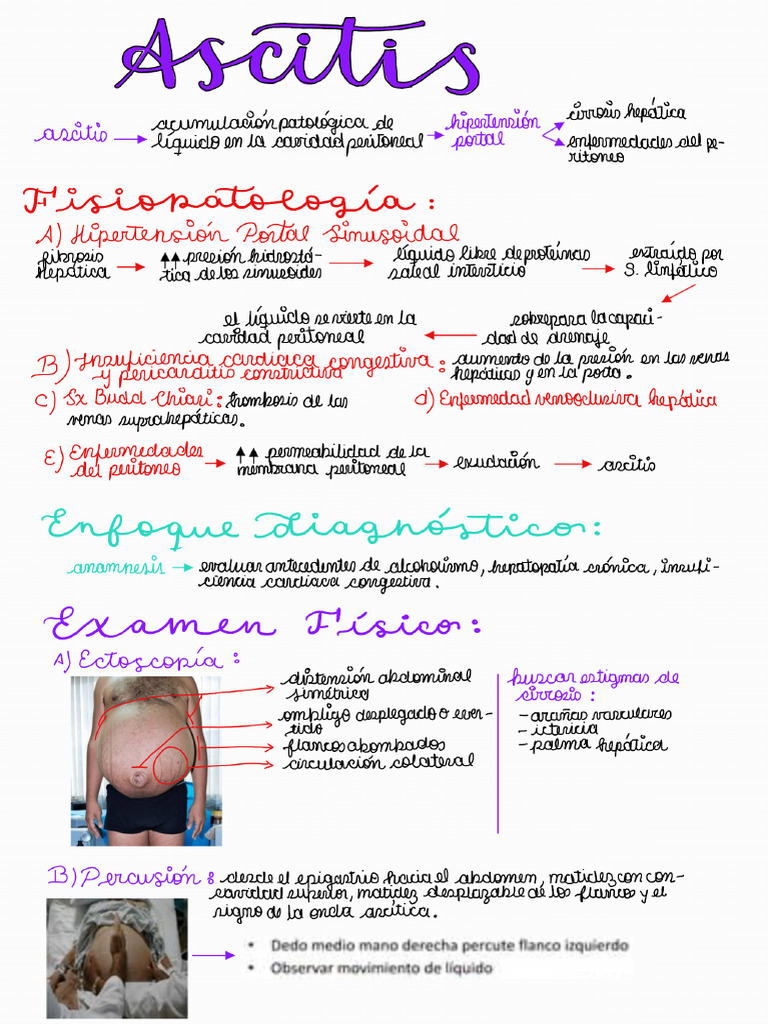 Ascitis
ascitis → acumulación patológica de
líquido en la cavidad peritoneal → hipertensión
portal
cirrosis hepática
enfermedades del pe-
ritoneo
Fisiopatología:
A) Hipertensión Portal Sinusoidal
fibrosis
hepática → ↑↑ presión hidrostá-
tica de los sinusoides → líquido libre de proteínas
sale al intersticio → extraído por
S. linfático
sobrepara la capaci-
dad de drenaje
el líquido se vierte en la
cavidad peritoneal
B) Insuficiencia cardiaca congestiva
y pericarditis constrictiva: aumento de la presión en las venas
hepáticas y en la porta.
C) Sx Budd Chiari: trombosis de las
venas suprahepáticas.
d) Enfermedad venooclusiva hepática
E) Enfermedades
del peritoneo → ↑↑ permeabilidad de la
membrana peritoneal → exudación → ascitis
Enfoque diagnóstico:
anamnesis → evaluar antecedentes de alcoholismo, hepatopatía crónica, insufi-
ciencia cardiaca congestiva.
Examen Físico:
A) Ectoscopía:
distensión abdominal
simétrica
ombligo desplegado o ever-
tido
flancos abombados
circulación colateral
buscar estigmas de
cirrosis:
- arañas vasculares
- ictericia
- palma hepática
B) Percusión: desde el epigastrio hacia el abdomen, matidez con con-
cavidad superior, matidez desplazable de los flancos y el
signo de la onda ascítica.
• Dedo medio mano derecha percute flanco izquierdo
• Observar movimiento de líquido